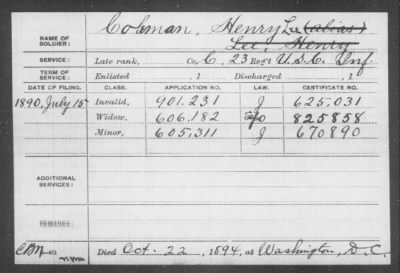 NAME OF SOLDIER: Colman, Henry Lee (alias)
Lee, Henry
SERVICE: Late rank, Co. C, 23 Reg't U.S.C. Inf.
TERM OF SERVICE: Enlisted , 1 Discharged , 1
DATE OF FILING. CLASS. APPLICATION NO. LAW. CERTIFICATE NO.
1890, July 15 Invalid, 901.231 J 625.031
Widow, 606.182 825858
Minor, 605.311 J 670890
ADDITIONAL SERVICES:
REMARKS:
Died Oct. 22, 1894, at Washington, D.C.